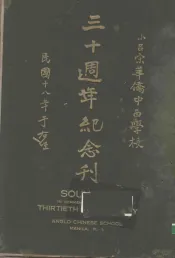 小呂宋華僑中西學校
三十週年紀念刊
民國十八年于右任
SOU
THIRTIETH
ANGLO-CHINESE SCHOOL
MANILA, P. I.